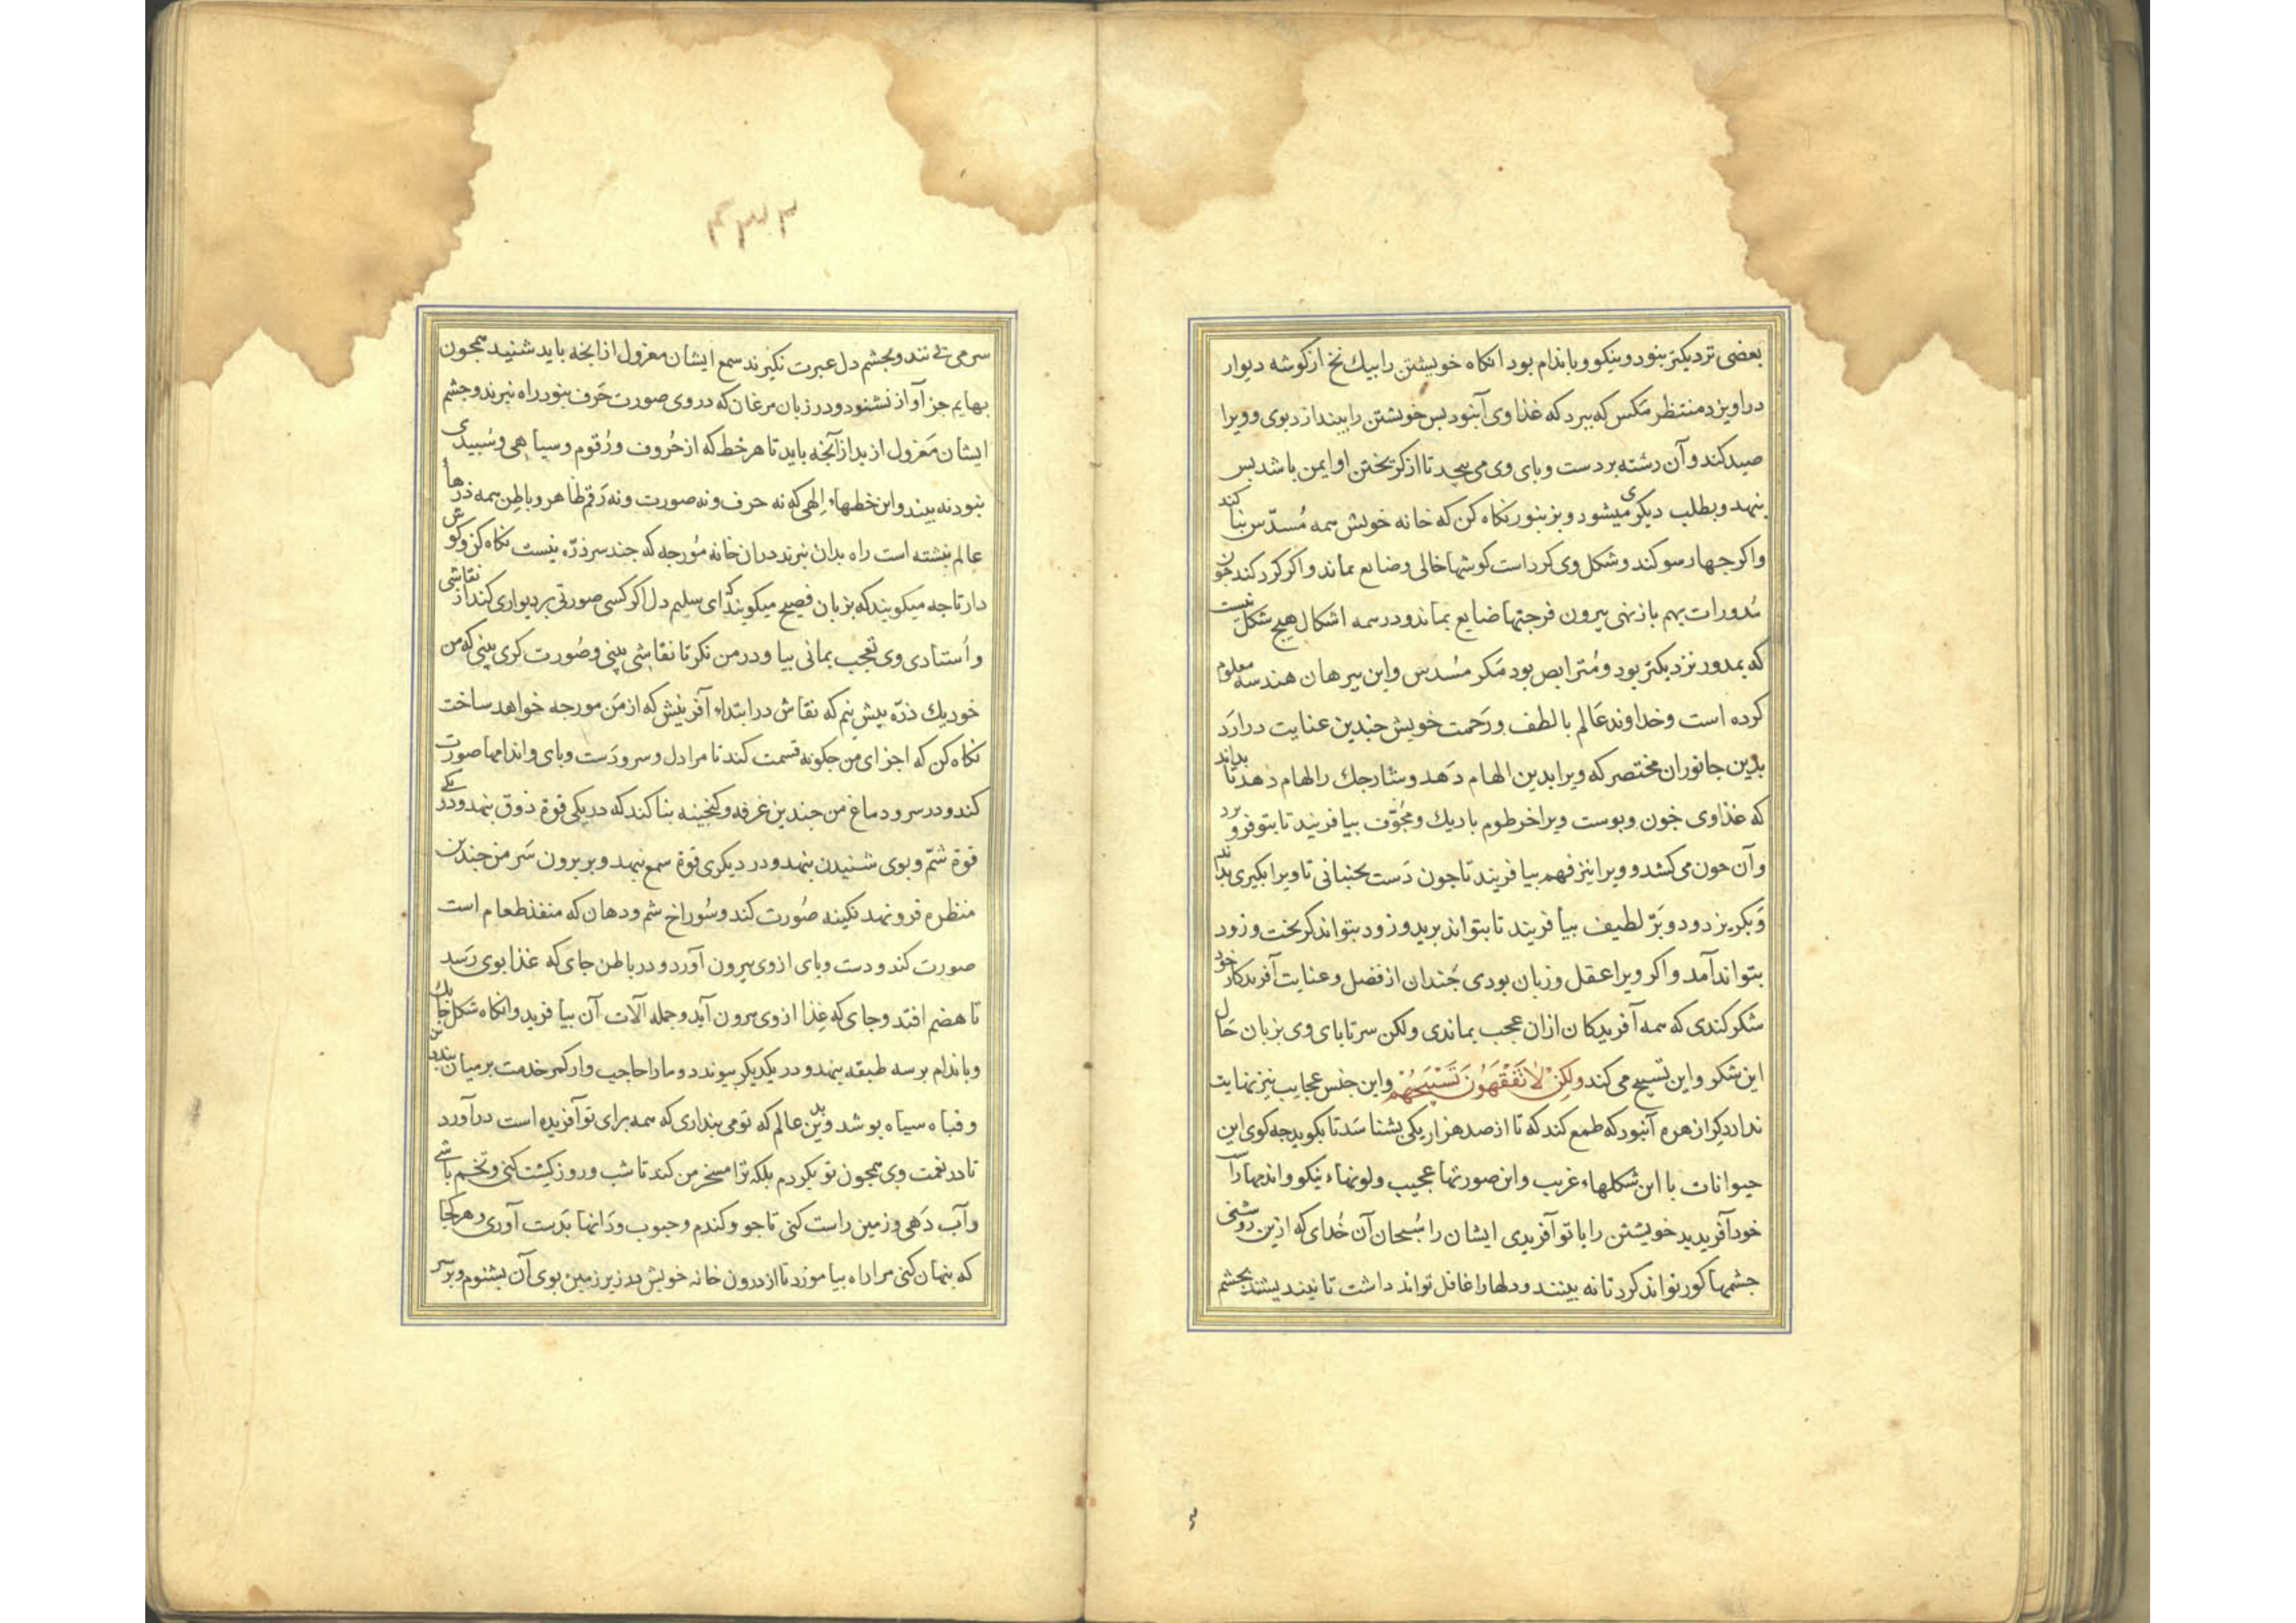 بعضی نزدیکتر بنود و بنیکو و باندام بود انکاه خویشتن را بیك نخ از کوشه دیوار
دراویزد منتظر مکس که ببرد که غذاوی آنبود بس خویشتن را بیندازد بوی وویرا
صید کند وآن رشته بر دست و بای وی می بیجد تا از کریختن او ایمن باشد بس
بنهد و بطلب دیکری میشود و بزنبور نکاه کن که خانه خویش همه مُسدّس بنا کند
واکر جهار سو کند و شکل وی کرداست کوشها خالی و ضایع بماند واکر کرد کند جون
مُدورات بهم باز نهی بیرون فرجتها ضایع بماند و در همه اشکال هیچ شکل نیست
که بمدور نزدیکتر بود و مُترابص بود مکر مسُدس واین ببرهان هندسه معلوم
کرده است وخداوند عَالم با لطف ورَحمت خویش جندین عنایت دراَرَد
بدین جانوران مختصر که ویرا بدین الهام دَهد و شارجك را الهام دهد تا بداند
که غذاوی خون وبوست ویرا خرطوم باریك ومجُوّف بیافرنید تا بتو فرو برد
وآن خون می کشد و ویرا نیز فهم بیافریند تا جون دَست بجنبانی تا ویرا بکیری بداند
وَبکریزد ودو بَرّ لطیف بیافریند تا بتواند برید و زود بتواند کریخت و زود
بتواند آمد واکر ویرا عقل و زبان بودی جُندان از فضل وعنایت آفریدکار خود
شکر کندی که همه آفریدکان ازان عجب بماندی ولکن سرتابای وی بزبان حَال
این شکر واین تسبیح می کند ولکِنْ لاٰ تَفْقَهَوُنَ تَسْبیٖحَهُمْ واین جنس عجایب نیز نهایت
ندارد کرا زهره آنبود که طمع کند که تا از صد هزار یکی بشناسَد تا بکوید جه کوی این
حیوانات با این شکلهاء غریب واین صورتها عجیب ولونهاء نیکو واندامها راست
خود آفریدید خویشتن را یا تو آفریدی ایشان را سُبحان آن خُدای که ازین روشنی
جشمها کور تواند کرد تا نه بینند و دلها را غافل تواند داشت تا نیندیشند بجشم
۴۳۳
سر می بینند و بجشم دل عبرت نکیرند سمع ایشان معزول از انجه باید شنید همجون
بهایم جز آواز نشنود و در زبان مرغان که در وی صورت حَرف بنود راه نبرند و جشم
ایشان مَعزول از بداز آنجه باید تا هر خط که از حُروف ورُقوم وسیاهی وسُبیدی
بنود نه بیند واین خطهاء اِلهی که نه حرف ونه صورت ونه رَقم ظاهر وباطن همه ذرها
عالم نبشته است راه بدان نبرند دران خانه مُورجه که جند سر ذرّه نیست نکاه کن وکوش
دار تا جه میکویند که بزبان فصیح میکویند که ای سلیم دل اکر کسی صورتی بر دیواری کند از نقاشی
و اُستادی وی تعجب بمانی بیا و در من نکر تا نقاشی بینی و صُورت کری بینی که من
خود یك ذرّه بیش نیم که نقاش در ابتداء آفرینش که از مَن مورجه خواهد ساخت
نکاه کن که اجزای من جکونه قسمت کند تا مرا دل وسر ودَست وبای واندامها صورت
کند و در سر و دماغ من جندین غرفه و کنجینه بنا کند که در یکی قوة ذوق بنهد و در یکی
قوة شمّ و بوی شنیدن بنهد و در دیکری قوة سمع بنهد و بر برون سَر من جندین
منظره فرو نهد نکینه صُورت کند وسُوراخ شم ودهان که منفذ طعام است
صورت کند و دست وبای از وی بیرون آورد و در باطن جای که غذا بوی رَسد
تا هضم افتد و جای که غِذا از وی بیرون آید و جمله آلات آن بیافرید وانکاه شکل جابك
وباندام بر سه طبقه بنهد و در یکدیکر بیوندد و ما را حاجب وار کمر خدمت بر میان من بندد
وقباه سیاه بوشد وبدین عالم که تو می بنداری که همه برای تو آفریده است درآورد
تا در نعمت وی همجون تو بکردم بلکه ترا مسخر من کند تا شب و روز کشت کنی و تخم باشی
وآب دَهی و زمین راست کنی تا جو وکندم وحبوب ودَانها بدَست آوری و هر کجا
که بنهان کنی مرا راه بیاموزد تا از درون خانه خویش در زیر زمین بوی آن بشنوم و بر سر